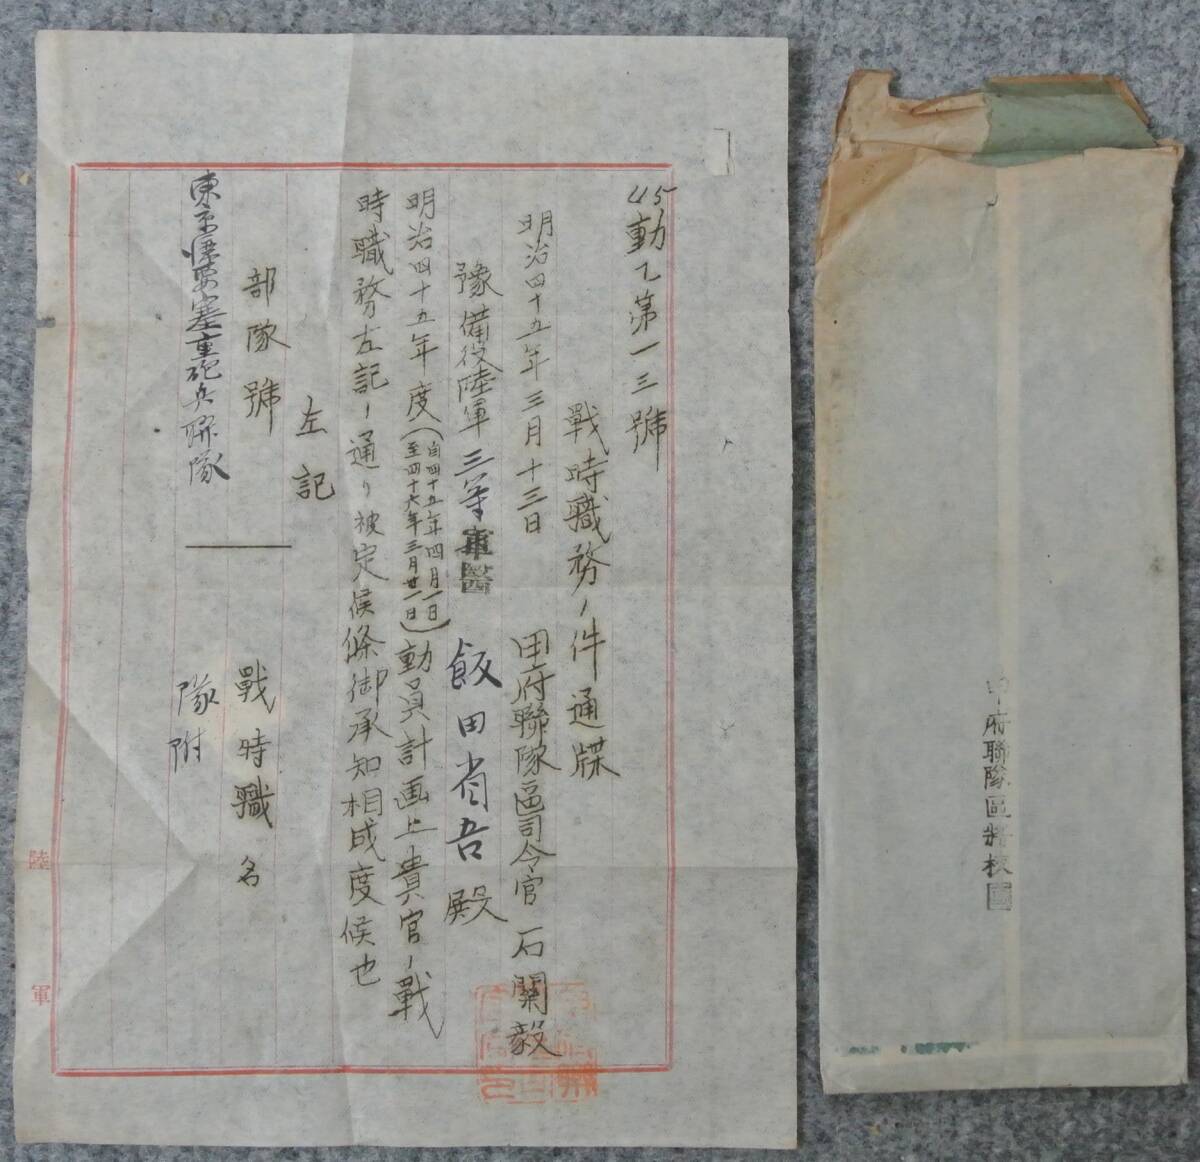 45動乙第一三號
戰時職務ノ件通牒
明治四十五年三月十三日
甲府聯隊區司令官 石關毅
豫備役陸軍三等軍醫 飯田省吾殿
明治四十五年度(自四十五年四月一日至四十六年三月廿一日)動員計画上貴官ノ戰
時職務左記ノ通リ被定候條御承知相成度候也
左記
部隊號 戰時職名
東京湾要塞重砲兵聯隊 隊附
陸軍
甲府聯隊區將校團